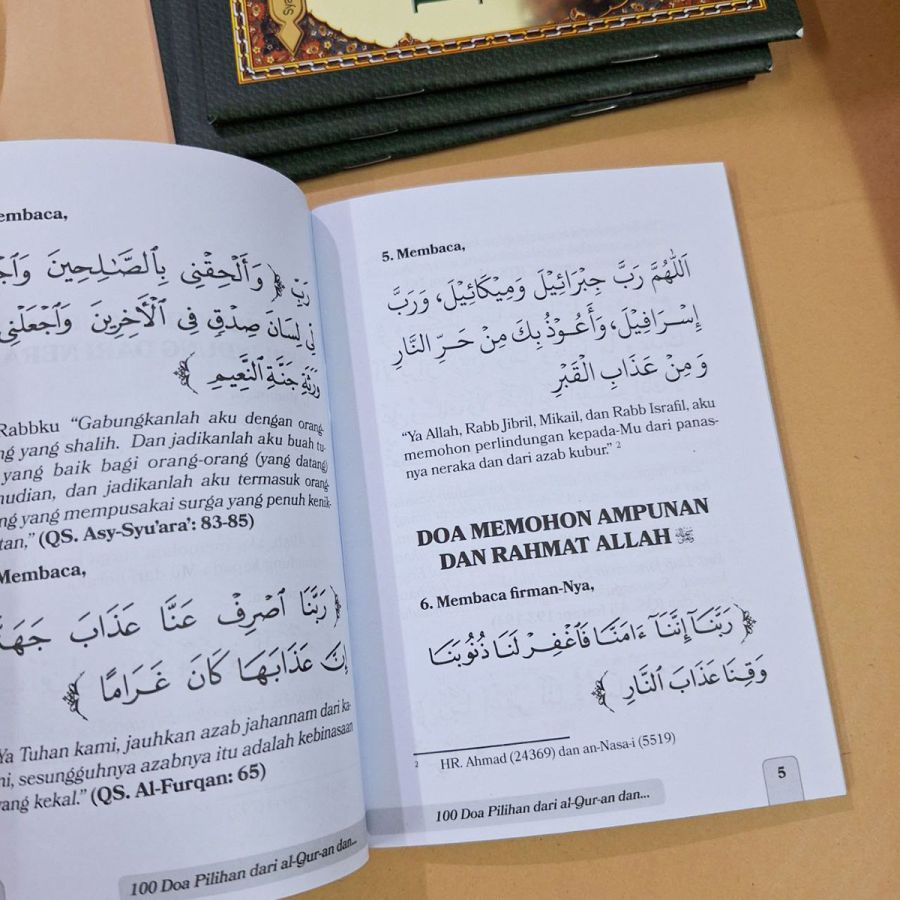 embaca,
رَبِّ ﴿ وَأَلْحِقْنِي بِٱلصَّـٰلِحِينَ
لِّي لِسَانَ صِدْقٍ فِي ٱلْأَخِرِينَ وَٱجْعَلْنِي
وَرَثَةِ جَنَّةِ ٱلنَّعِيمِ ﴾
Rabbku "Gabungkanlah aku dengan orang-
ng yang shalih. Dan jadikanlah aku buah tu-
yang baik bagi orang-orang (yang datang)
mudian, dan jadikanlah aku termasuk orang-
ng yang mempusakai surga yang penuh kenik-
tan," (QS. Asy-Syu'ara': 83-85)
Membaca,
﴿ رَبَّنَا ٱصْرِفْ عَنَّا عَذَابَ جَهَنَّ
إِنَّ عَذَابَهَا كَانَ غَرَامًا ﴾
Ya Tuhan kami, jauhkan azab jahannam dari ka-
ni, sesungguhnya azabnya itu adalah kebinasaan
yang kekal." (QS. Al-Furqan: 65)
100 Doa Pilihan dari al-Qur-an dan...
5. Membaca,
اَللّٰهُمَّ رَبَّ جِبْرَائِيْلَ وَمِيْكَائِيْلَ، وَرَبَّ
إِسْرَافِيْلَ، وَأَعُوْذُ بِكَ مِنْ حَرِّ النَّارِ
وَمِنْ عَذَابِ الْقَبْرِ
"Ya Allah, Rabb Jibril, Mikail, dan Rabb Israfil, aku
memohon perlindungan kepada-Mu dari panas-
nya neraka dan dari azab kubur." 2
DOA MEMOHON AMPUNAN
DAN RAHMAT ALLAH ﷻ
6. Membaca firman-Nya,
﴿ رَبَّنَآ إِنَّنَآ ءَامَنَّا فَٱغْفِرْ لَنَا ذُنُوبَنَا
وَقِنَا عَذَابَ ٱلنَّارِ ﴾
2 HR. Ahmad (24369) dan an-Nasa-i (5519)
100 Doa Pilihan dari al-Qur-an dan...
5